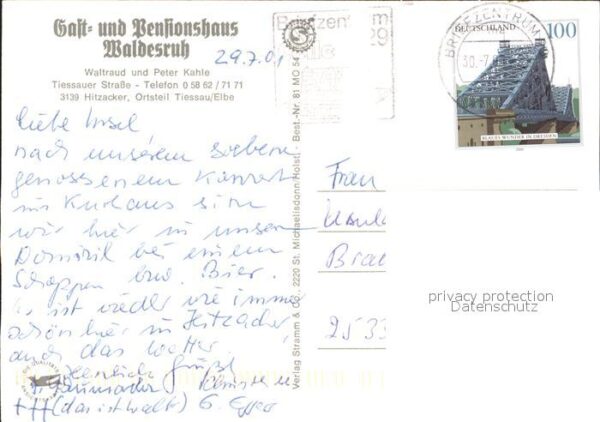 Gast- und Pensionshaus
Waldesruh
Waltraud und Peter Kahle
Tiessauer Straße - Telefon 0 58 62 / 71 71
3139 Hitzacker, Ortsteil Tiessau/Elbe
29.7.01
Liebe
nach unserem soeben
genossenem Konzert
im Kurhaus sind
wir hier in unserem
Domizil bei einem
Schoppen bzw. Bier.
Es ist wieder wie immer
schön hier in Hitzacker,
auch das Wetter.
Herzlich grüßt
(das ist walt) G.
Verlag Stramm & Co., 2220 St. Michaelisdonn/Holst. - Best.-Nr. 81 MO 54
BRIEFZENTRUM
30.-7.
DEUTSCHLAND 100
BLAUES WUNDER IN DRESDEN
2000
Frau
Ursula
Brau
2533
privacy protection
Datenschutz